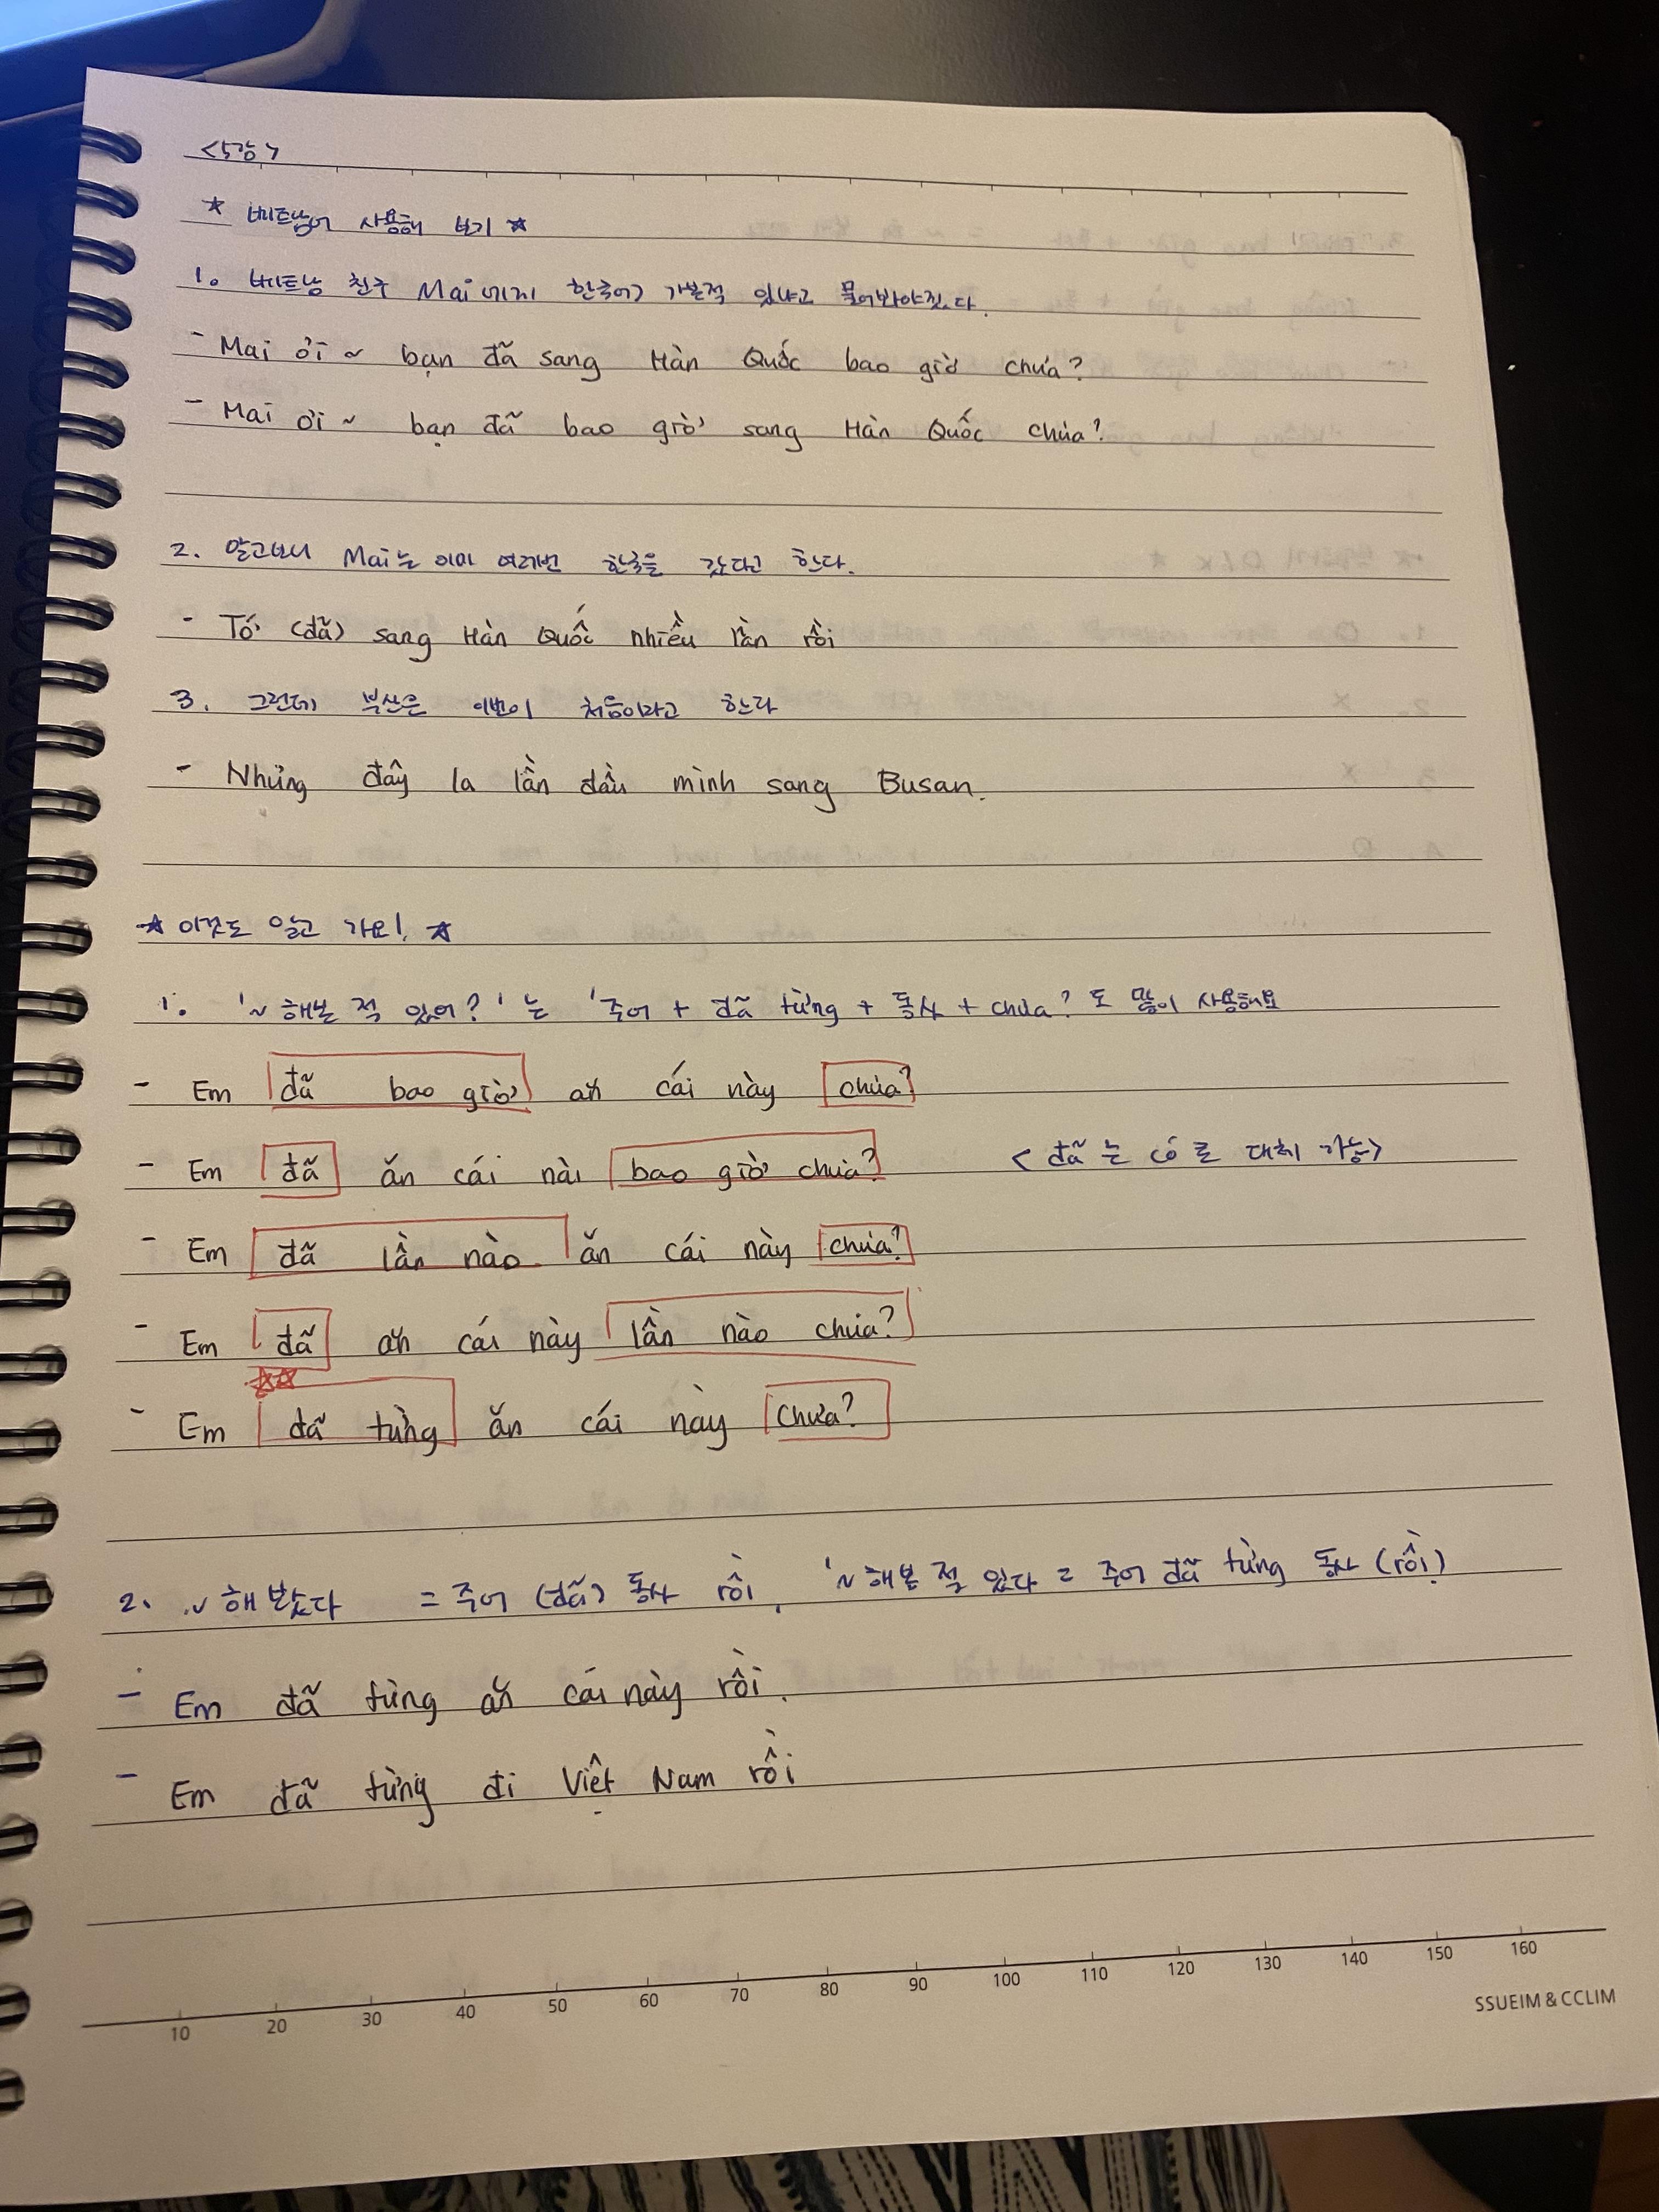 <5강>
☆ 베트남어 사용해 보기 ☆
1. 베트남 친구 Mai에게 한국에 가본적 있냐고 물어봐야겠다.
- Mai ơi ~ bạn đã sang Hàn Quốc bao giờ chưa?
- Mai ơi ~ bạn đã bao giờ sang Hàn Quốc chưa?
2. 알고보니 Mai는 이미 여러번 한국을 갔다고 한다.
- Tớ (đã) sang Hàn Quốc nhiều lần rồi
3. 그런데 부산은 이번이 처음이라고 한다
- Nhưng đây la lần dầu mình sang Busan.
☆ 이것도 알고 가요! ☆
1. '~ 해본 적 있어?' 는 '주어 + đã từng + 동사 + chưa? 도 많이 사용해요
- Em đã bao giờ ăn cái này chưa?
- Em đã ăn cái nài bao giờ chưa? <đã 는 có 로 대체 가능>
- Em đã lần nào ăn cái này chưa?
- Em đã ăn cái này lần nào chưa?
☆☆
- Em đã từng ăn cái này chưa?
2. ~ 해 봤다 = 주어 (đã) 동사 rồi, '~ 해본 적 있다 = 주어 đã từng 동사 (rồi)
- Em đã từng ăn cái này rồi.
- Em đã từng đi Việt Nam rồi
10 20 30 40 50 60 70 80 90 100 110 120 130 140 150 160
SSUEIM & CCLIM